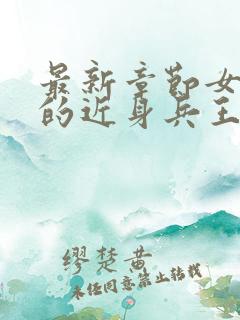 最新章节女
的近身兵王
缪楚黄
未经同意禁止转载